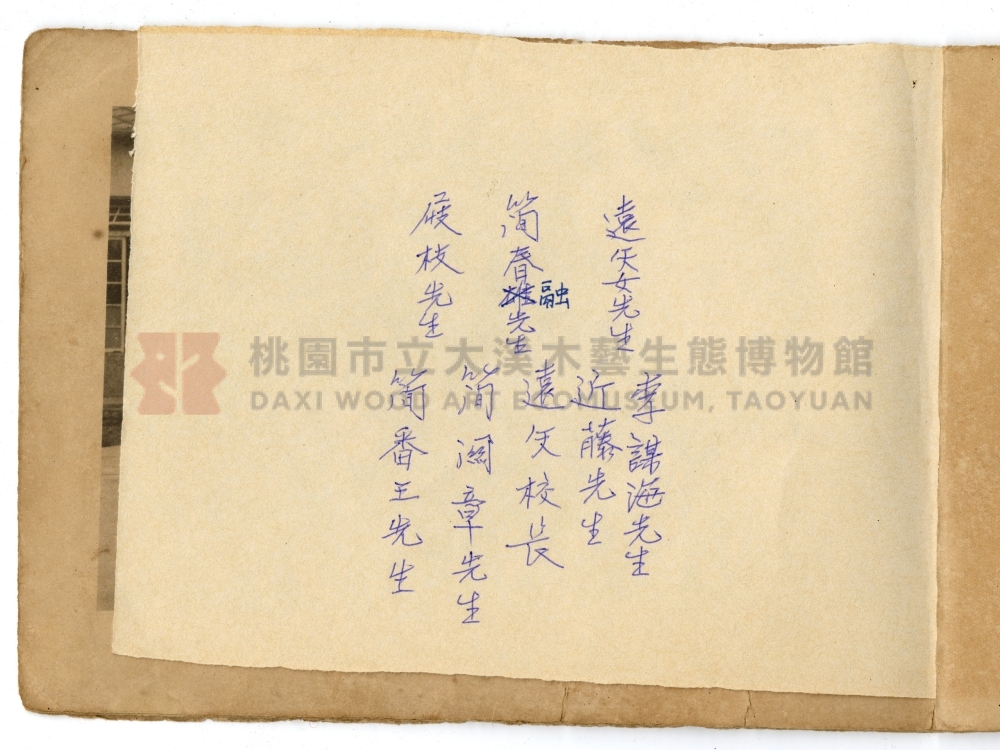 遠矢女先生
简春融先生
枝先生
李謀海先生
近藤先生
遠矢校長
简章先生
简番王先生
桃園市立大溪木藝生態博物館
DAXI WOOD ART ECOMUSEUM, TAOYUAN